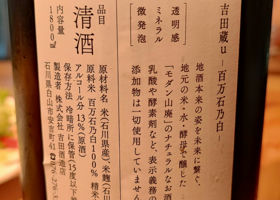 吉田蔵u ―百万石乃白―
地酒本来の姿を未来に繋ぐ、
地元の米・水・酵母で醸した
「モダン山廃」のナチュラルなお酒
乳酸や酵素剤など、表示義務の
添加物は一切使用していません
透明感
ミネラル
微発泡
品目
清酒
内容量
1800㎖
原材料名 米(石川県産)、米麹(石川県
原料米 百万石乃白100% 精米
アルコール分 13%(原酒)
保存方法 冷暗所に保管(15度以下
製造者 株式会社 吉田酒造店
石川県白山市安吉町41